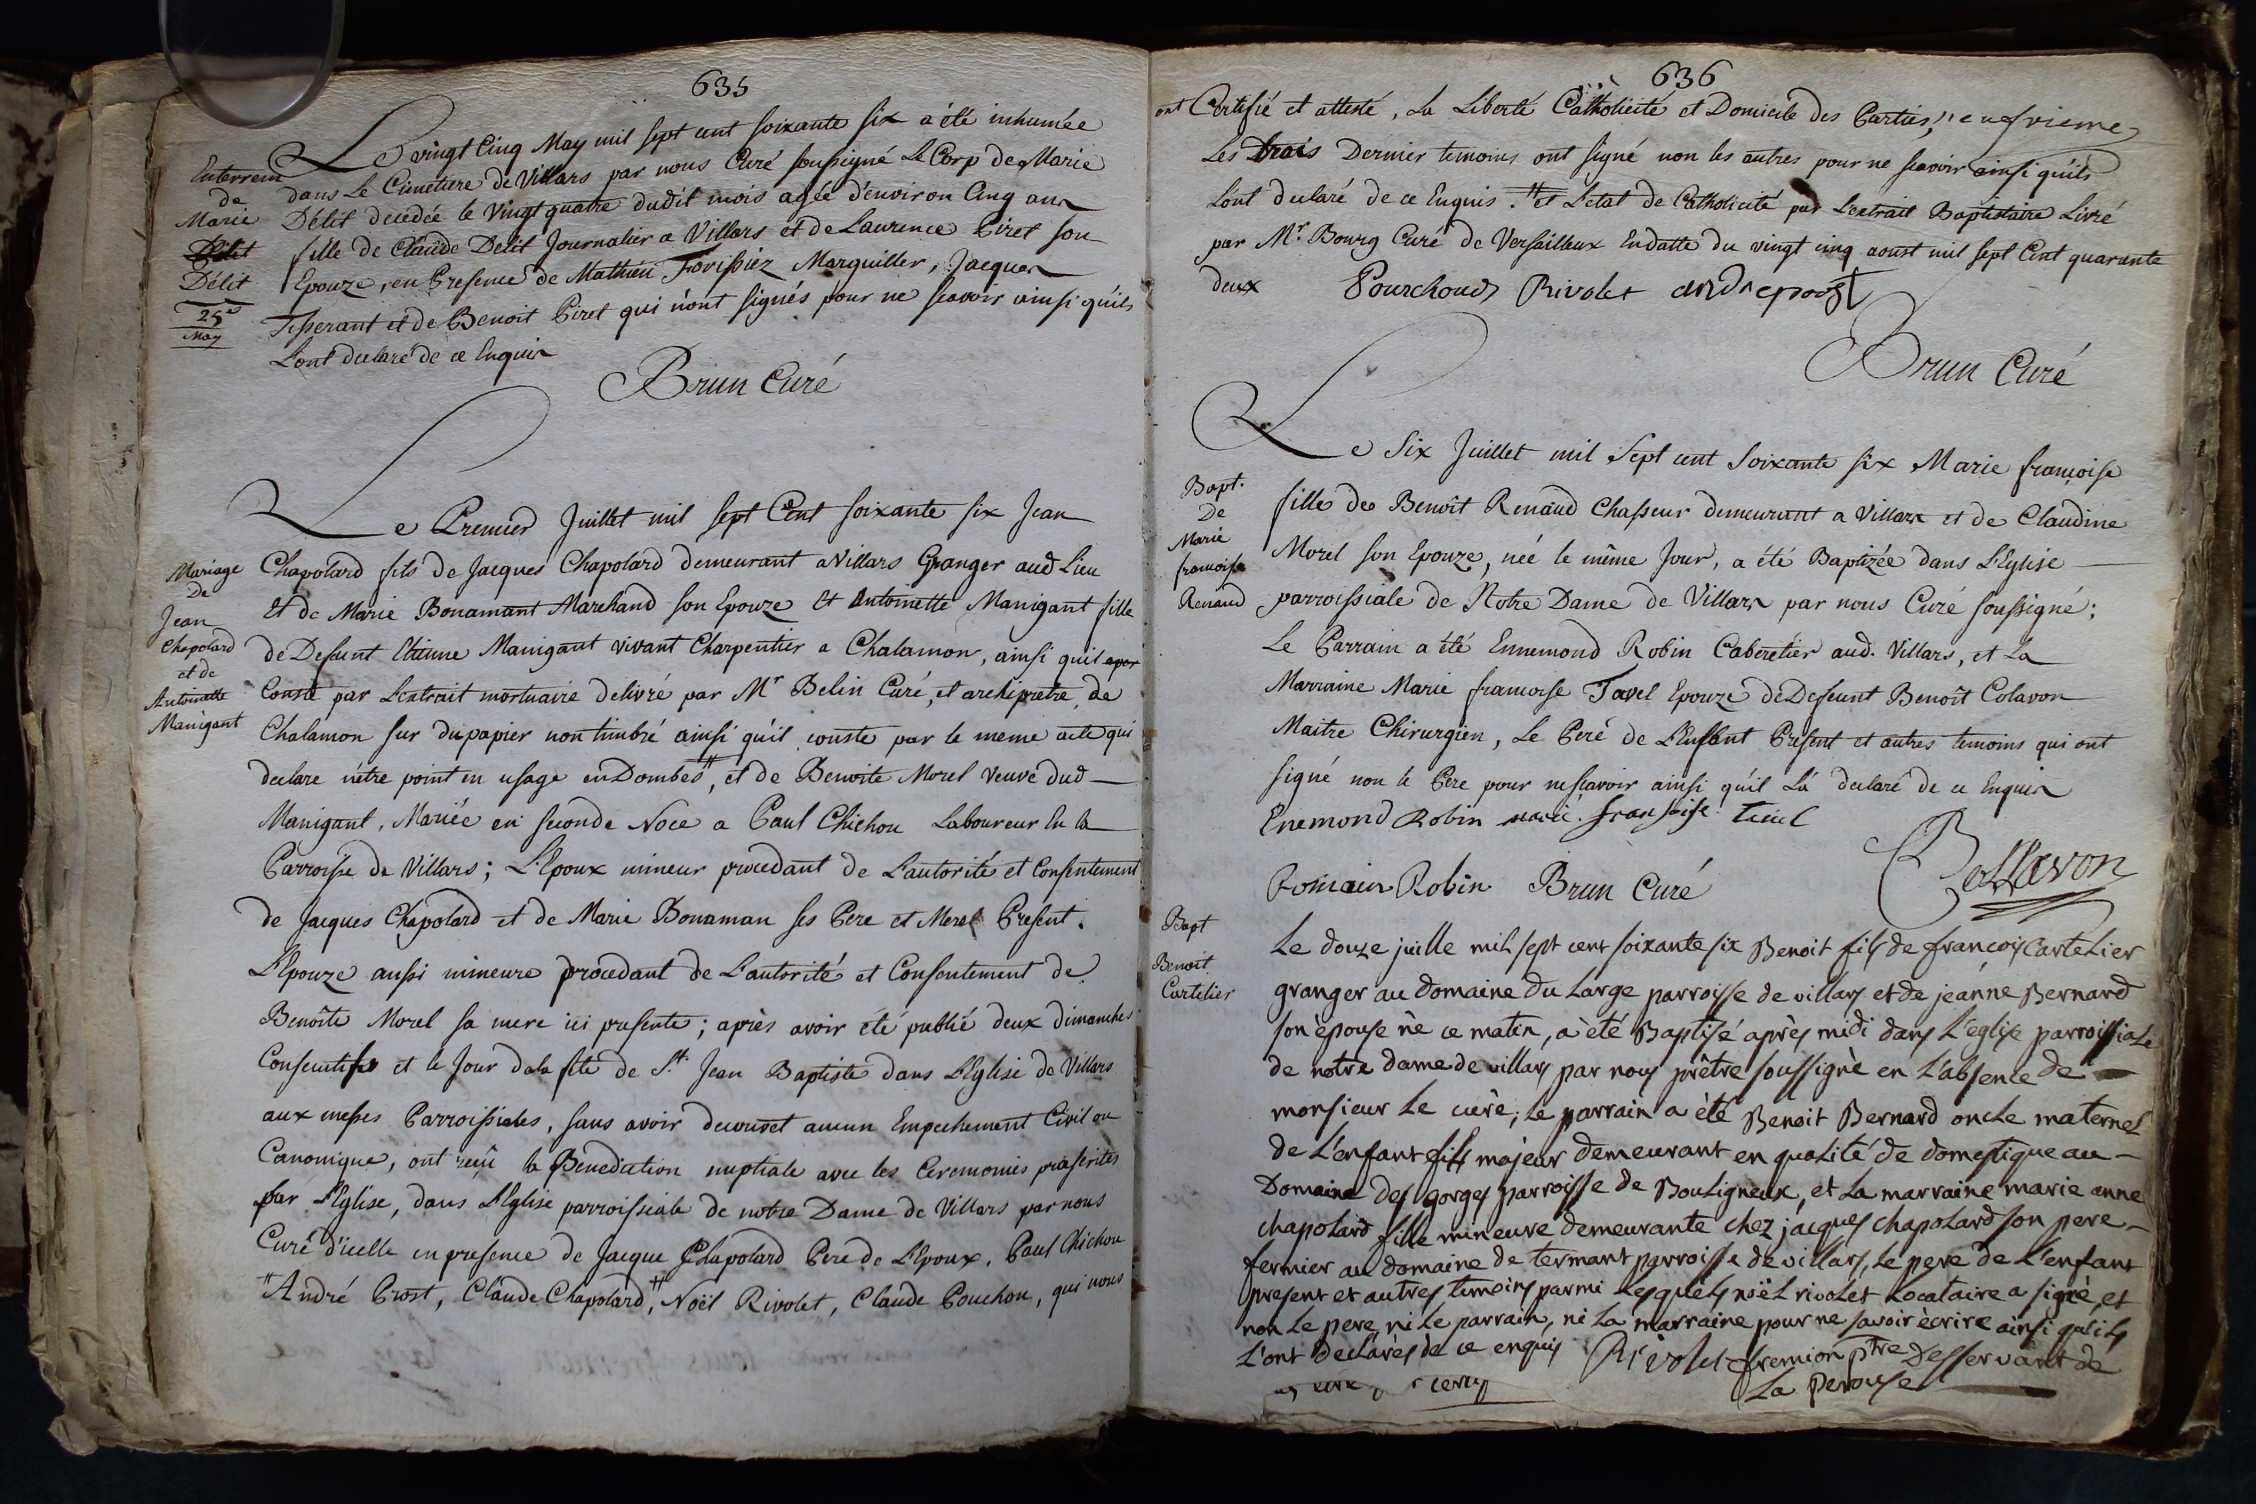 635
Le vingt Cinq May mil sept cent soixante six a été inhumée
dans Le Cimetiere de Villars par nous Curé soussigné Le Corp de Marie
Délit decedée le Vingt quatre dudit mois agée d'environ Cinq ans
fille de Claude Delit Journalier a Villars et de Laurence Piret son
Epouze, en Presence de Mathieu Marguiller, Jacques
Tisserant et de Benoit Piret qui n'ont signés pour ne scavoir ainsi qu'ils
L'ont declaré de ce Enquis
Enterrem
de
Marie
Délit
25e
May
Brun Curé
Le Premier Juillet mil sept Cent soixante six Jean
Chapolard fils de Jacques Chapolard demeurant a Villars Granger aud Lieu
Et de Marie Bonamant Marchand son Epouze Et Antoinette Manigant fille
de Defunt Etienne Manigant vivant Charpentier a Chalamon, ainsi qu'il
Conste par L'extrait mortuaire delivré par Mr Belin Curé, et archiprêtre de
Chalamon sur du papier non timbré ainsi qu'il conste par le meme acte qui
declare n'être point en usage en Dombes", et de Benoite Morel veuve dud
Manigant, Mariée en seconde Noce a Paul Chichou Laboureur En la
Parroisse de Villars; L'Epoux mineur procedant de L'autorité et Consentement
de Jacques Chapolard et de Marie Bonaman ses Pere et Mere Present.
L'Epouze aussi mineure procedant de L'autorité et Consentement de
Benoîte Morel sa mere ici presente; après avoir été publié deux dimanches
Consecutifs et le Jour de la fête de St. Jean Baptiste dans L'Eglise de Villars
aux messes Parroissiales, sans avoir decouvert aucun Empechement Civil ou
Canonique, ont reçû la Benediction nuptiale avec les Ceremonies prescrites
par L'Eglise, dans L'Eglise parroissiale de notre Dame de Villars par nous
Curé d'icelle en presence de Jacque Chapolard Pere de L'Epoux, Paul Chichou
"André Prost, Claude Chapolard," Noël Rivolet, Claude Pouchon, qui nous
Mariage
De
Jean
Chapolard
et de
Antoinette
Manigant
636
ont Certifié et attesté, La Liberté Catholicité et Domicile des Parties,
Les trois Dernier temoins ont signé non les autres pour ne scavoir ainsi qu'ils
L'ont declaré de ce Enquis. "et L'etat de Catholicité par L'extrait Baptistaire Livré
par Mr. Bourg Curé de Versailleux En datte du vingt cinq aoust mil sept Cent quarante
deux Pourchoud Rivolet
Brun Curé
Le Six Juillet mil Sept cent Soixante six Marie françoise
fille de Benoît Renaud Chasseur demeurant a Villars et de Claudine
Morel son Epouze, née le même Jour, a été Baptizée dans L'Eglise
parroissiale de Notre Dame de Villars par nous Curé soussigné:
Le Parrain a été Ennemond Robin Cabaretier aud. Villars, et La
Marraine Marie francoise Tavel Epouze de Defeunt Benoît Colavon
Maitre Chirurgien, Le Peré de L'Enfant Présent et autres temoins qui ont
signé non le Pere pour ne scavoir ainsi qu'il L'a declaré de ce Enquis
Bapt.
De
Marie
francoise
Renaud
Enemond Robin marie françoise
Romain Robin Brun Curé
Collavon
Le douze juille mil sept cent soixante six Benoit fils de françois Cartelier
granger au domaine du Large parroisse de villars et de jeanne Bernard
son épouse né ce matin, a été Baptisé après midi dans L'église parroissiale
de notre dame de villars par nous prêtre soussigné en L'absence de
monsieur Le curé; Le parrain a été Benoit Bernard oncle maternel
de L'enfant fils majeur demeurant en qualité de domestique au
Domaine des gorges parroisse de Bouligneux, et La marraine marie anne
chapolard fille mineure demeurante chez jacques chapolard son pere
fermier au domaine de termant parroisse de villars, Le pere de L'enfant
present et autres temoins parmi Lesquels noël rivolet Locataire a signé, et
non Le pere, ni Le parrain, ni La marraine pour ne savoir écrire ainsi qu'ils
L'ont déclarés de ce enquis Rivolet fremion ptre Desservant de
La perouse
Bapt
Benoit
Cartelier